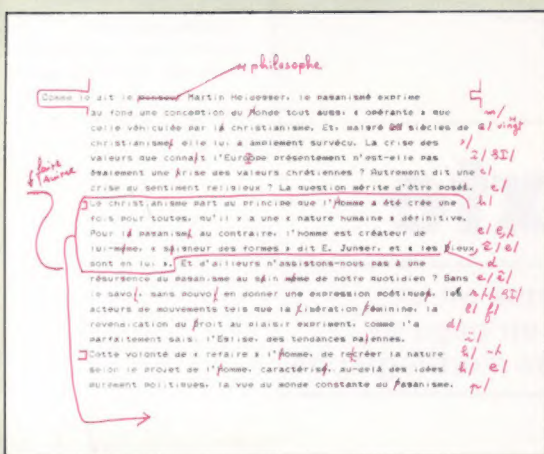 philosophe
Comme le dit le penseur Martin Heidegger, le paganisme exprime
au fond une conception du Monde tout aussi « opérante » que m/
celle véhiculée par la christianisme. Et, malgré 20 siècles de e/ vingt
christianisme, elle lui a amplement survécu. La crise des
valeurs que connait l'Europe présentement n'est-elle pas î/
également une crise des valeurs chrétiennes ? Autrement dit une c/
crise du sentiment religieux ? La question mérite d'être posée. e/
faire suivre
Le christianisme part du principe que l'Homme a été créé une h/
fois pour toutes, qu'il « a une « nature humaine » définitive.
Pour le paganisme au contraire, l'homme est créateur de
lui-même, « seigneur des formes » dit E. Junger, et « les Dieux
d
sont en lui ». Et d'ailleurs n'assistons-nous pas à une
résurgence du paganisme au sein même de notre quotidien ? Sans e/ ê/
le savoir, sans pouvoir en donner une expression poétique, les
acteurs de mouvements tels que la Libération Féminine, la l/ f/
revendication du Droit au plaisir expriment, comme l'a d/
parfaitement saisi l'Eglise, des tendances païennes. ï/
Cette volonté de « refaire » l'Homme, de recréer la nature h/
selon le projet de l'Homme, caractérise, au-delà des idées h/ e/
purement politiques, la vue du monde constante du Paganisme. p/